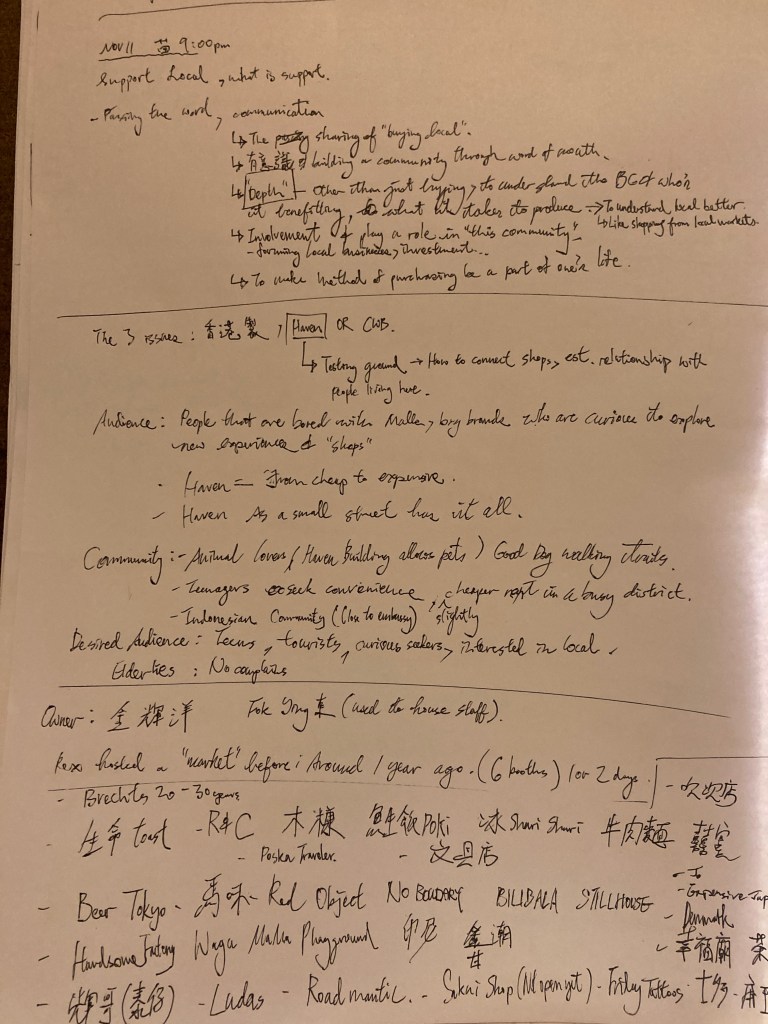 Nov 11 9:00pm
Support Local, what is support.
- Passing the word, communication
↳ The sharing of "buying local".
↳ 有意識 building a community through word of mouth.
↳ "Depth" - Other than just buying, to understand the BG of who's
it benefitting, what it takes to produce → To understand local better.
↳ Like shopping from local markets.
↳ Involvement & play a role in "this community"
- forming local businesses, investment...
↳ To make method of purchasing be a part of one's life.
The 3 issues : 香港製, Haven OR CWB.
↳ Testing ground → How to connect shops, est. relationship with
people living here.
Audience : People that are bored with Malls, big brands who are curious to explore
new experience & "shops"
- Haven = From cheap to expensive.
- Haven As a small street has it all.
Community : - Animal lovers (Haven Building allows pets) Good Dog walking
- Teenagers seek convenience, slightly cheaper in a busy district.
- Indonesian Community (Close to embassy)
Desired Audience : Teens, tourists, curious seekers, interested in local
Elderlies : No complains
Owner : 金輝洋 Fok Ying 東 (used to house staff).
hosted a "market" before; Around 1 year ago. (6 booths) for 2 days.
- Brechts 20-30 years
- 欠欠店
- 生命 toast - R&C 木糠 魚生飯 Poki 冰 Shari Shari 牛肉麵
- Traveler. - 文具店
- Expensive
- Denmark
- Beer Tokyo - Red Object No BOUNDARY BILIBALA STILLHOUSE
- Handsome Waga Playground 印尼 金潮
- 幸福
- 輝哥 (泰仔) - Ludas - Roadmantic. - Sakai Shop (Not open yet) - Friday Tattoos - 士多